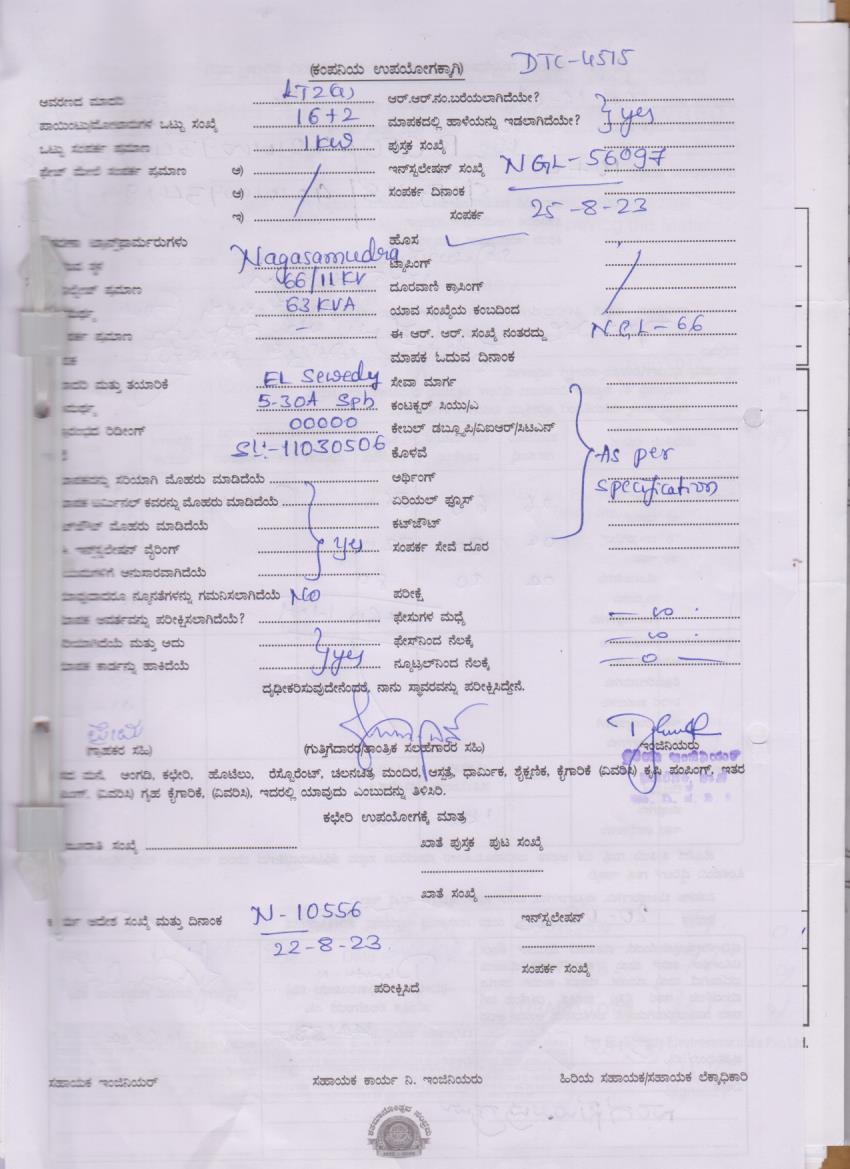 (ಕಂಪನಿಯ ಉಪಯೋಗಕ್ಕಾಗಿ) DTC-4515
ಆವರಣದ ಮಾದರಿ LT2(a) ಆರ್.ಆರ್.ನಂ.ಬರೆಯಲಾಗಿದೆಯೇ?
ಒಟ್ಟು ಸಂಖ್ಯೆ 16+2 ಮಾಪಕದಲ್ಲಿ ಹಾಳೆಯನ್ನು ಇಡಲಾಗಿದೆಯೇ? yes
ಒಟ್ಟು ಸಂಪರ್ಕ ಪ್ರಮಾಣ 1KW ಪುಸ್ತಕ ಸಂಖ್ಯೆ
ಫೇಸ್ ಮೇಲೆ ಸಂಪರ್ಕ ಪ್ರಮಾಣ ಅ) ಇನ್‌ಸ್ಟಲೇಷನ್ ಸಂಖ್ಯೆ NGL-56097
ಆ) ಸಂಪರ್ಕ ದಿನಾಂಕ
ಇ) ಸಂಪರ್ಕ 25-8-23
ಹೊಸ
Nagasamudra ಟ್ಯಾಪಿಂಗ್
ಪ್ರಮಾಣ 66/11KV ದೂರವಾಣಿ ಕ್ರಾಸಿಂಗ್
63KVA ಯಾವ ಸಂಖ್ಯೆಯ ಕಂಬದಿಂದ
ಪ್ರಮಾಣ - ಈ ಆರ್. ಆರ್. ಸಂಖ್ಯೆ ನಂತರದ್ದು NGL-66
ಮಾಪಕ ಓದುವ ದಿನಾಂಕ
ಮತ್ತು ತಯಾರಿಕೆ EL Sewedy ಸೇವಾ ಮಾರ್ಗ
5-30A Sph ಕಂಟಕ್ಟರ್ ಸಿಯು/ಎ
ರಿಡಿಂಗ್ 00000 ಕೇಬಲ್ ಡಬ್ಲ್ಯೂಪಿ/ವಿಐಆರ್/ಸಿಟಿಎನ್
SL:-11030506 ಕೊಳವೆ As per
ಸರಿಯಾಗಿ ಮೊಹರು ಮಾಡಿದೆಯೆ ಅರ್ಥಿಂಗ್
ಕವರನ್ನು ಮೊಹರು ಮಾಡಿದೆಯೆ ಏರಿಯಲ್ ಫ್ಯೂಸ್ specification
ಮೊಹರು ಮಾಡಿದೆಯೆ ಕಟ್‌ಔಟ್
ಇನ್‌ಸ್ಟಲೇಷನ್ ವೈರಿಂಗ್ yes ಸಂಪರ್ಕ ಸೇವೆ ದೂರ
ಅನುಸಾರವಾಗಿದೆಯೆ
ನ್ಯೂನತೆಗಳನ್ನು ಗಮನಿಸಲಾಗಿದೆಯೆ NO ಪರೀಕ್ಷೆ
ಪರೀಕ್ಷಿಸಲಾಗಿದೆಯೆ? ಫೇಸುಗಳ ಮಧ್ಯೆ
ಮತ್ತು ಅದು ಫೇಸ್‌ನಿಂದ ನೆಲಕ್ಕೆ
ಕಾರ್ಡನ್ನು ಹಾಕಿದೆಯೆ yes ನ್ಯೂಟ್ರಲ್‌ನಿಂದ ನೆಲಕ್ಕೆ
ದೃಢೀಕರಿಸುವುದೇನೆಂದರೆ, ನಾನು ಸ್ಥಾವರವನ್ನು ಪರೀಕ್ಷಿಸಿದ್ದೇನೆ.
(ಗ್ರಾಹಕರ ಸಹಿ) (ಗುತ್ತಿಗೆದಾರರ/ತಾಂತ್ರಿಕ ಸಲಹೆಗಾರರ ಸಹಿ) ಇಂಜಿನಿಯರು
ಮನೆ, ಅಂಗಡಿ, ಕಛೇರಿ, ಹೋಟೆಲು, ರೆಸ್ಟೋರೆಂಟ್, ಚಲನಚಿತ್ರ ಮಂದಿರ, ಆಸ್ಪತ್ರೆ, ಧಾರ್ಮಿಕ, ಶೈಕ್ಷಣಿಕ, ಕೈಗಾರಿಕೆ (ವಿವರಿಸಿ) ಕೃಷಿ ಪಂಪಿಂಗ್, ಇತರ
(ವಿವರಿಸಿ) ಗೃಹ ಕೈಗಾರಿಕೆ, (ವಿವರಿಸಿ), ಇದರಲ್ಲಿ ಯಾವುದು ಎಂಬುದನ್ನು ತಿಳಿಸಿರಿ.
ಕಛೇರಿ ಉಪಯೋಗಕ್ಕೆ ಮಾತ್ರ
ಸಂಖ್ಯೆ ಖಾತೆ ಪುಸ್ತಕ ಪುಟ ಸಂಖ್ಯೆ
ಖಾತೆ ಸಂಖ್ಯೆ
ಆದೇಶ ಸಂಖ್ಯೆ ಮತ್ತು ದಿನಾಂಕ N-10556 ಇನ್‌ಸ್ಟಲೇಷನ್
22-8-23
ಸಂಪರ್ಕ ಸಂಖ್ಯೆ
ಪರೀಕ್ಷಿಸಿದೆ
ಸಹಾಯಕ ಇಂಜಿನಿಯರ್ ಸಹಾಯಕ ಕಾರ್ಯ ನಿ. ಇಂಜಿನಿಯರು ಹಿರಿಯ ಸಹಾಯಕ/ಸಹಾಯಕ ಲೆಕ್ಕಾಧಿಕಾರಿ